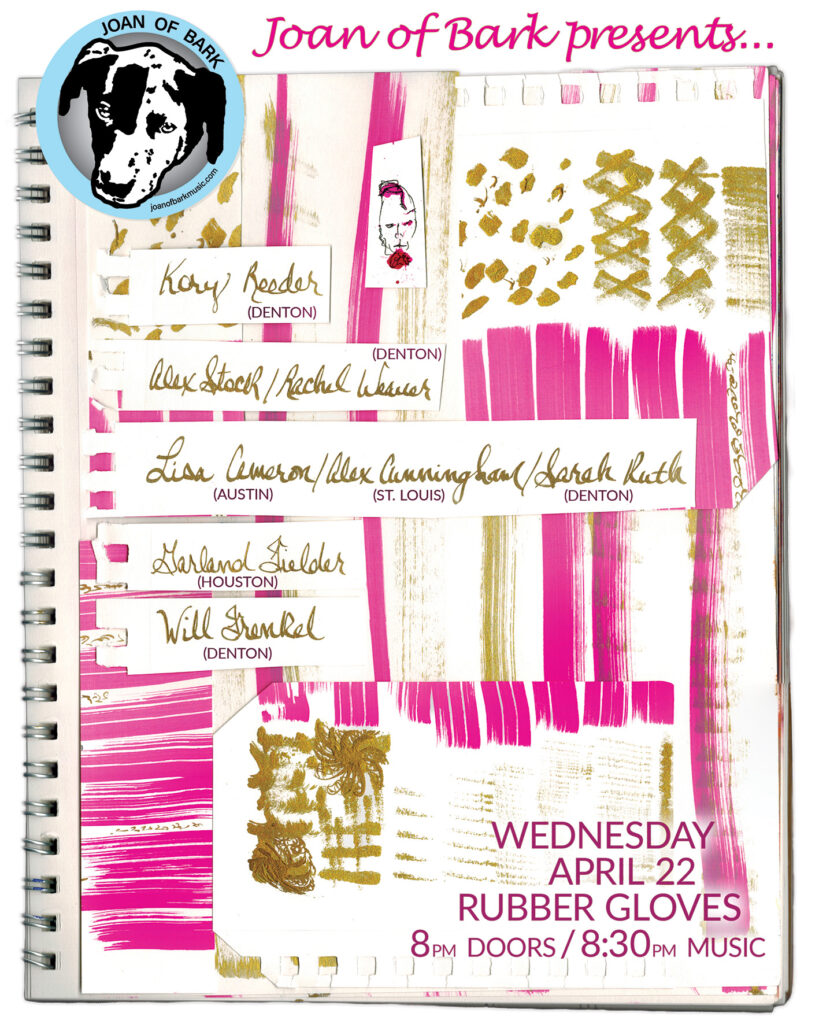 JOAN OF BARK
joanofbarkmusic.com
Joan of Bark presents...
Kory Reeder
(DENTON)
(DENTON)
Alex Stock/Rachel Weaver
Lisa Cameron/Alex Cunningham/Sarah Ruth
(AUSTIN) (ST. LOUIS) (DENTON)
Garland Fielder
(HOUSTON)
Will Frenkel
(DENTON)
WEDNESDAY
APRIL 22
RUBBER GLOVES
8PM DOORS / 8:30PM MUSIC